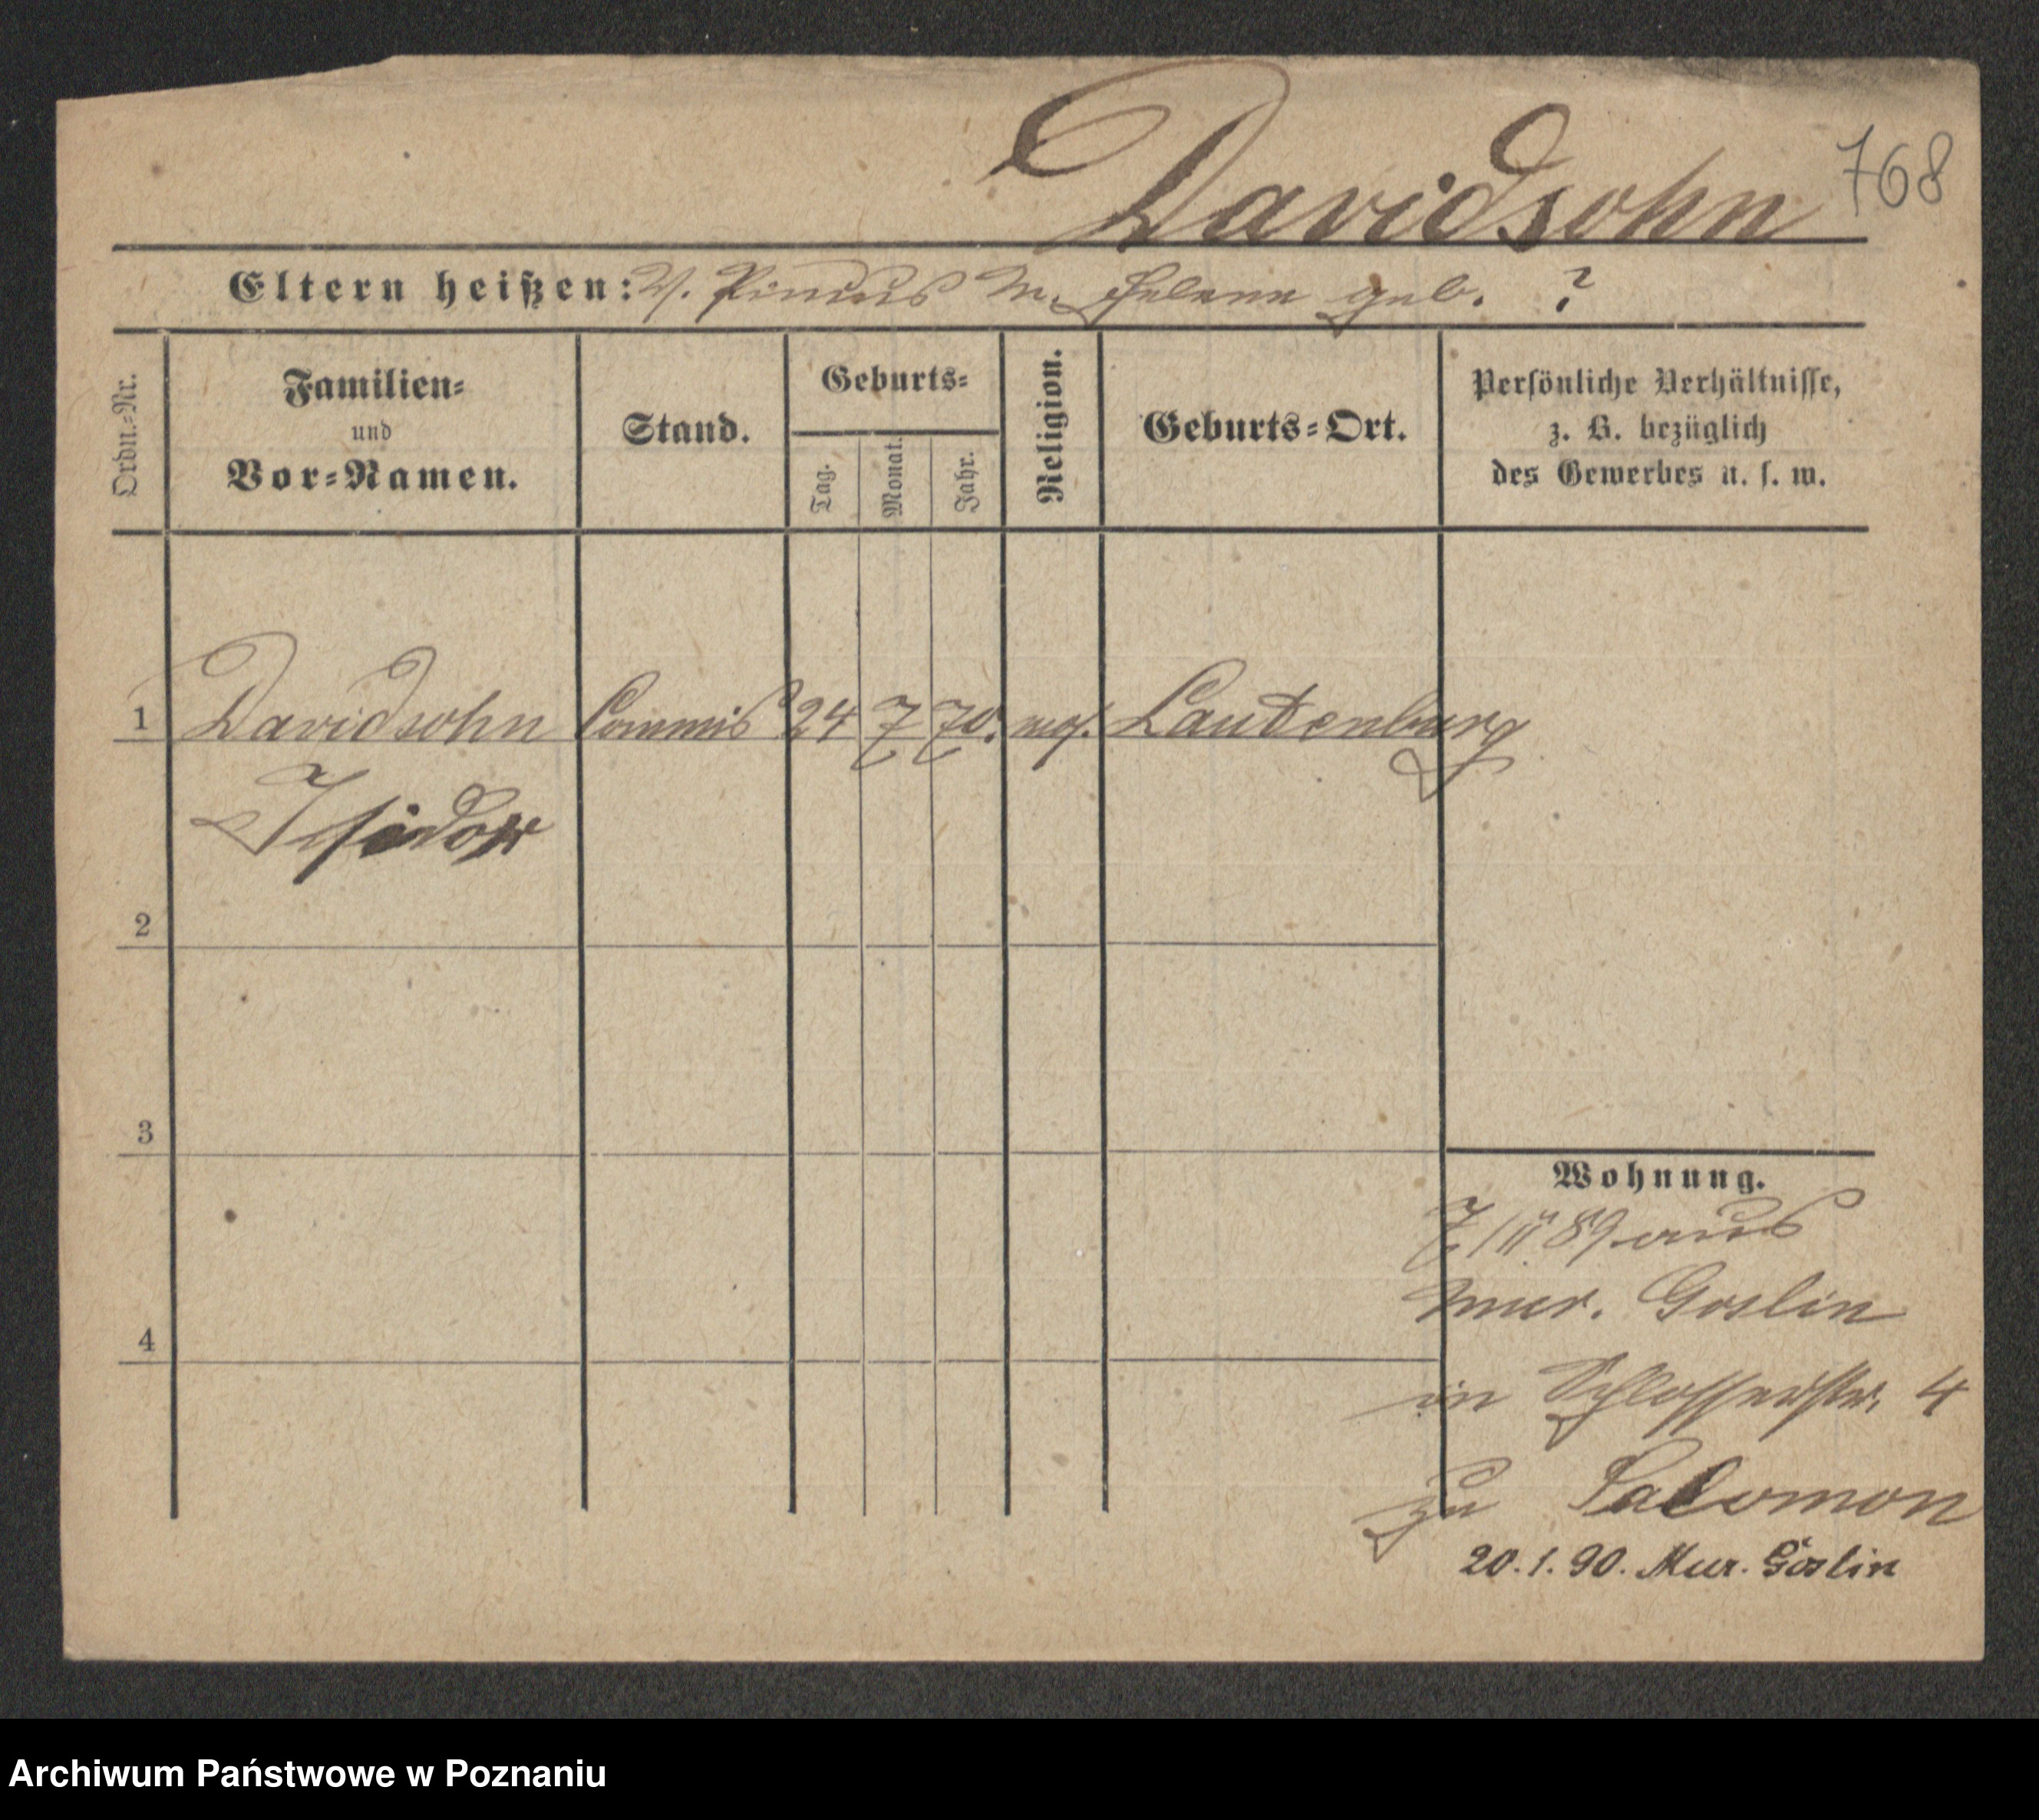 768
Davidsohn
Eltern heißen: V. Pincus M. Helene geb. ?
Ordn.-Nr.
Familien-
und
Vor-Namen.
Stand.
Geburts-
Tag.
Monat.
Jahr.
Religion.
Geburts-Ort.
Persönliche Verhältnisse,
z. B. bezüglich
des Gewerbes u. s. w.
1 Davidsohn Commis 24 7 70. mos. Lautenburg
Isidor
2
3
4
Wohnung.
7/11 89 aus
Mur. Goslin
in Schlosserstr. 4
zu Salomon
20.1.90. Mur. Goslin
Archiwum Państwowe w Poznaniu